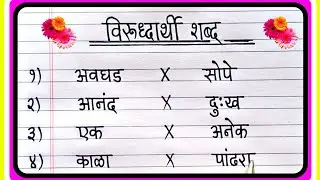 विरूध्दार्थी शब्द
१) अवघड X सोपे
२) आनंद X दुःख
३) एक X अनेक
४) काळा X पांढरा